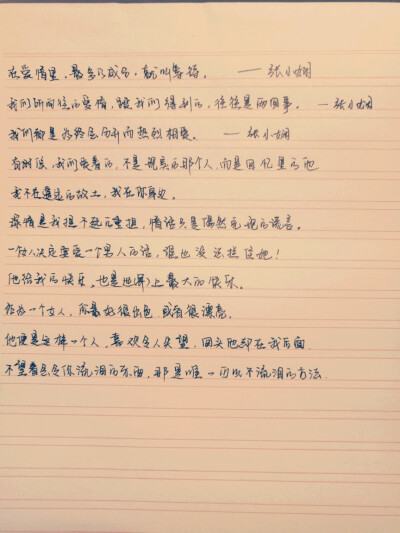 在爱情里，最多的成分，就叫等待。——张小娴
我们所向往的爱情，跟我们得到的，往往是两回事。——张小娴
我们都是为终会分开而热烈相爱。——张小娴
有时候，我们爱着的，不是现实的那个人，而是回忆里的他
我不在遥远的故土，我在你身边。
深情是我担不起的重担，情话只是偶然兑现的谎言。
一个女人决定要爱一个男人的话，谁也没法拦住她！
他给我的快乐，也是世界上最大的快乐。
作为一个女人，你最好很出色 或者很漂亮。
他便是这样一个人，喜欢令人失望，回头他却在我后面
不望着会令你流泪的东西，那是唯一可以不流泪的方法